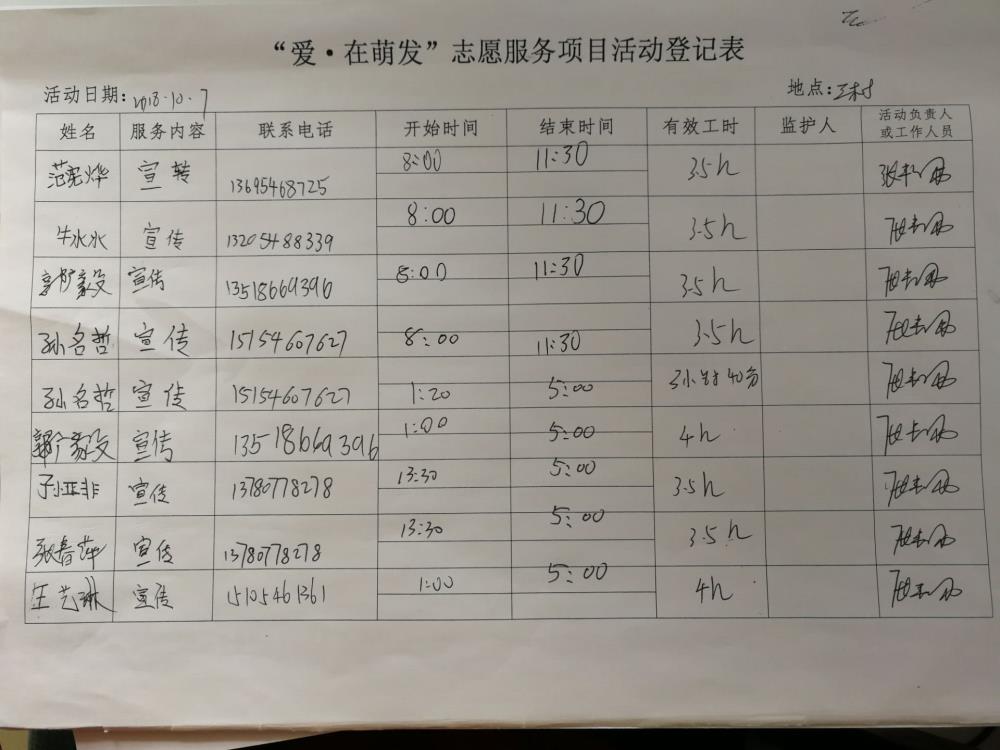 “爱·在萌发”志愿服务项目活动登记表
活动日期:2018.10.7 地点:三村
姓名 服务内容 联系电话 开始时间 结束时间 有效工时 监护人 活动负责人或工作人员
宣转 13695468725 8:00 11:30 3.5h
牛水水 宣传 13205488339 8:00 11:30 3.5h
郭广毅 宣传 13518669396 8:00 11:30 3.5h
孙名哲 宣传 15154607627 8:00 11:30 3.5h
孙名哲 宣传 15154607627 1:20 5:00 3小时40分
郭广毅 宣传 13518669396 1:00 5:00 4h
孙亚非 宣传 13780778278 13:30 5:00 3.5h
张春萍 宣传 13780778278 13:30 5:00 3.5h
王艺琳 宣传 15105461361 1:00 5:00 4h